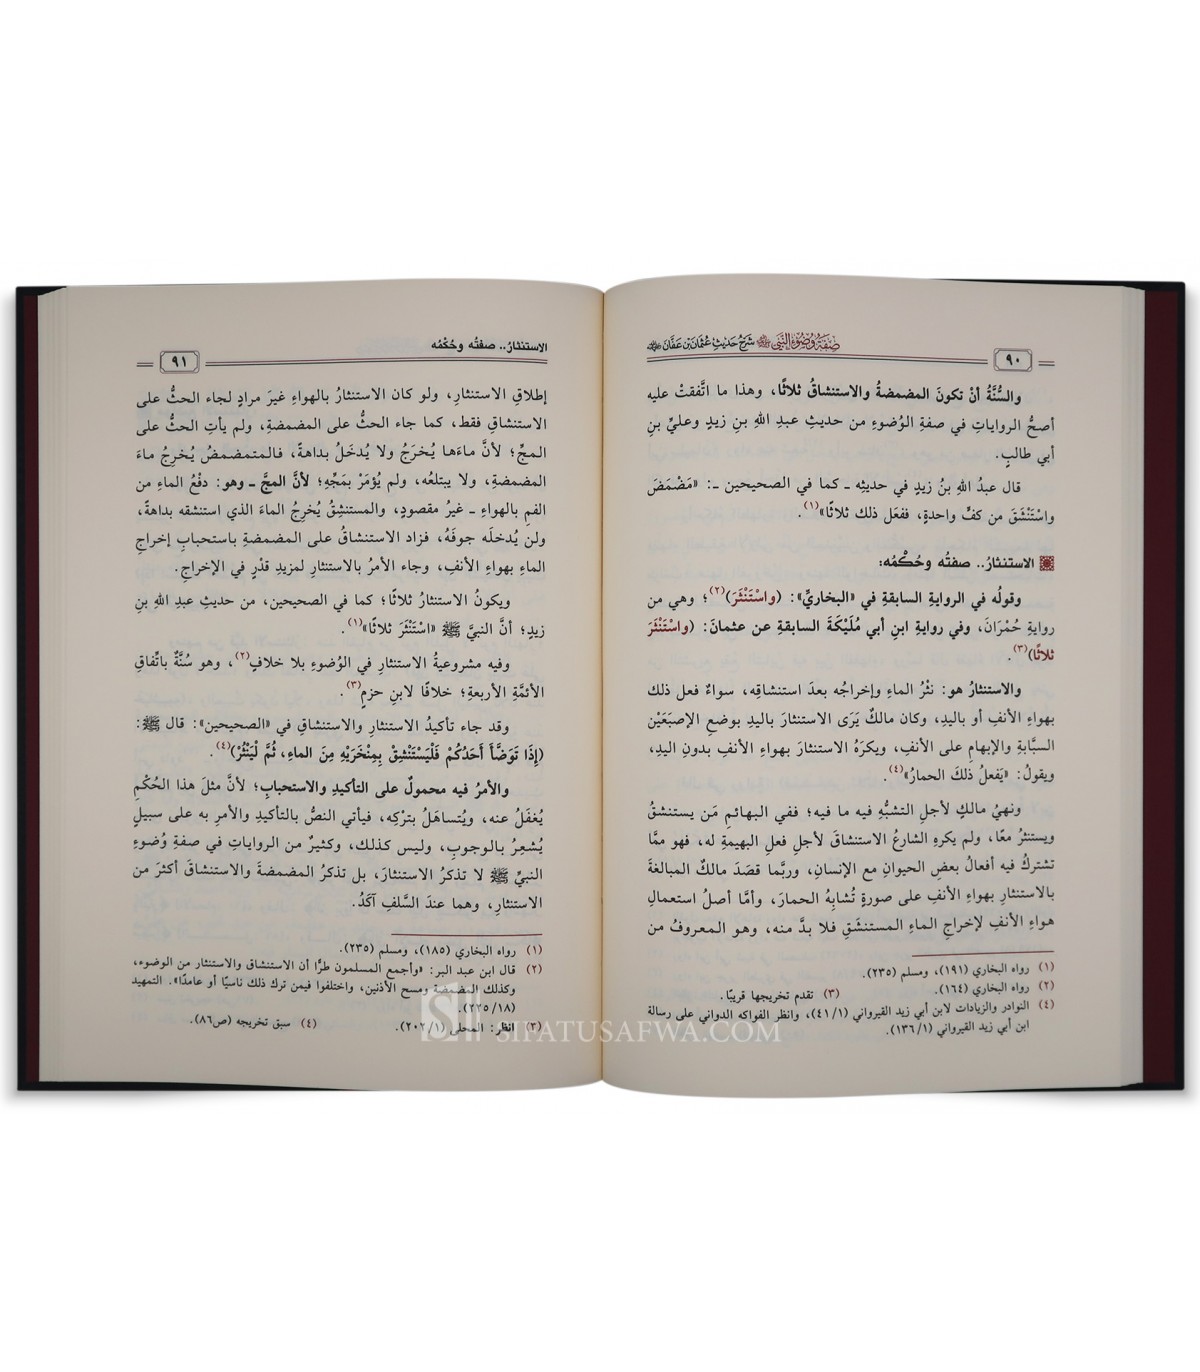 صفة وضوء النبي ﷺ شرح حديث عثمان بن عفان
٩٠
والسُّنَّةُ أنْ تكونَ المضمضةُ والاستنشاقُ ثلاثًا، وهذا ما اتَّفقتْ عليه
أصحُّ الرواياتِ في صفةِ الوُضوءِ من حديثِ عبدِ اللهِ بنِ زيدٍ وعليِّ بنِ
أبي طالبٍ.
قال عبدُ اللهِ بنُ زيدٍ في حديثِه ـ كما في الصحيحين ـ: «مَضْمَضَ
واسْتَنْشَقَ من كفٍّ واحدةٍ، ففعَل ذلك ثلاثًا»(١).
الاستنثارُ.. صفتُه وحُكْمُه:
وقولُه في الروايةِ السابقةِ في «البخاريِّ»: (واسْتَنْثَرَ)(٢)؛ وهي من
روايةِ حُمْرَانَ، وفي روايةِ ابنِ أبي مُلَيْكَةَ السابقةِ عن عثمانَ: (واسْتَنْثَرَ
ثلاثًا)(٣).
والاستنثارُ هو: نثْرُ الماءِ وإخراجُه بعدَ استنشاقِه، سواءٌ فعل ذلك
بهواءِ الأنفِ أو باليدِ، وكان مالكٌ يَرَى الاستنثارَ باليدِ بوضعِ الإصبَعَيْن
السبَّابةِ والإبهامِ على الأنفِ، ويكرَهُ الاستنثارَ بهواءِ الأنفِ بدونِ اليدِ،
ويقولُ: «يَفعلُ ذلكَ الحمارُ»(٤).
ونهيُ مالكٍ لأجلِ التشبُّهِ فيه ما فيه؛ ففي البهائمِ مَن يستنشقُ
ويستنثرُ معًا، ولم يكرهِ الشارعُ الاستنشاقَ لأجلِ فعلِ البهيمةِ له، فهو ممَّا
تشتركُ فيه أفعالُ بعضِ الحيوانِ مع الإنسانِ، وربَّما قصَدَ مالكٌ المبالغةَ
بالاستنثارِ بهواءِ الأنفِ على صورةٍ تُشابِهُ الحمارَ، وأمَّا أصلُ استعمالِ
هواءِ الأنفِ لإخراجِ الماءِ المستنشَقِ فلا بدَّ منه، وهو المعروفُ من
(١) رواه البخاري (١٩١)، ومسلم (٢٣٥).
(٢) رواه البخاري (١٦٤).
(٣) تقدم تخريجها قريبًا.
(٤) النوادر والزيادات لابن أبي زيد القيرواني (٤١/١)، وانظر الفواكه الدواني على رسالة
ابن أبي زيد القيرواني (١٣٦/١).
الاستنثارُ.. صفتُه وحُكْمُه
٩١
إطلاقِ الاستنثارِ، ولو كان الاستنثارُ بالهواءِ غيرَ مرادٍ لجاء الحثُّ على
الاستنشاقِ فقط، كما جاء الحثُّ على المضمضةِ، ولم يأتِ الحثُّ على
المجِّ؛ لأنَّ ماءَها يُخرَجُ ولا يُدخَلُ بداهةً، فالمتمضمضُ يُخرِجُ ماءَ
المضمضةِ، ولا يبتلعُه، ولم يُؤمَرْ بمَجِّهِ؛ لأنَّ المجَّ ـ وهو: دفْعُ الماءِ من
الفمِ بالهواءِ ـ غيرُ مقصودٍ، والمستنشِقُ يُخرِجُ الماءَ الذي استنشقه بداهةً،
ولن يُدخلَه جوفَهُ، فزاد الاستنشاقُ على المضمضةِ باستحبابِ إخراجِ
الماءِ بهواءِ الأنفِ، وجاء الأمرُ بالاستنثارِ لمزيدِ قدْرٍ في الإخراجِ.
ويكونُ الاستنثارُ ثلاثًا؛ كما في الصحيحين، من حديثِ عبدِ اللهِ بنِ
زيدٍ؛ أنَّ النبيَّ ﷺ «اسْتَنْثَرَ ثلاثًا»(١).
وفيه مشروعيةُ الاستنثارِ في الوُضوءِ بلا خلافٍ(٢)، وهو سُنَّةٌ باتِّفاقِ
الأئمَّةِ الأربعةِ؛ خلافًا لابنِ حزمٍ(٣).
وقد جاء تأكيدُ الاستنثارِ والاستنشاقِ في «الصحيحين»: قال ﷺ:
(إِذَا تَوَضَّأَ أَحَدُكُمْ فَلْيَسْتَنْشِقْ بِمِنْخَرَيْهِ مِنَ الماءِ، ثُمَّ لْيَنْثُرْ)(٤).
والأمرُ فيه محمولٌ على التأكيدِ والاستحبابِ؛ لأنَّ مثلَ هذا الحُكْمِ
يُغفَلُ عنه، ويُتساهَلُ بتركِه، فيأتي النصُّ بالتأكيدِ والأمرِ به على سبيلٍ
يُشعِرُ بالوجوبِ، وليس كذلك، وكثيرٌ من الرواياتِ في صفةِ وُضوءِ
النبيِّ ﷺ لا تذكرُ الاستنثارَ، بل تذكرُ المضمضةَ والاستنشاقَ أكثرَ من
الاستنثارِ، وهما عندَ السَّلفِ آكَدُ.
(١) رواه البخاري (١٨٥)، ومسلم (٢٣٥).
(٢) قال ابن عبد البر: «وأجمع المسلمون طرًّا أن الاستنشاق والاستنثار من الوضوء،
وكذلك المضمضة ومسح الأذنين، واختلفوا فيمن ترك ذلك ناسيًا أو عامدًا». التمهيد
(٢٢٥/١٨).
(٣) انظر: المحلى (٢٠٢/١).
(٤) سبق تخريجه (ص٨٦).
SIFATUSAFWA.COM